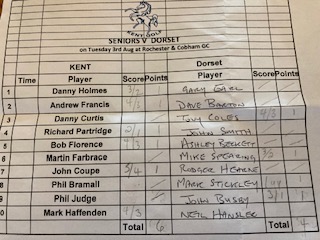 KENT GOLF
SENIORS V DORSET
on Tuesday 3rd Aug at Rochester & Cobham GC
KENT Dorset
Time Player Score Points Player Score Points
1 Danny Holmes 3/2 1 GARY GALE
2 Andrew Francis 1 DAVE BARTON
3 Danny Curtis TONY COLES 4/3 1
4 Richard Partridge 2/1 1 JOHN SMITH
5 Bob Florence 4/3 1 ASHLEY BECKETT
6 Martin Farbrace MIKE SPEARING 1
7 John Coupe 5/4 1 RODGER HEARNE
8 Phil Bramall MARK STICKLEY 1
9 Phil Judge JOHN BUSBY 3/1 1
0 Mark Haffenden 4/3 1 NEIL
Total 6 Total 4